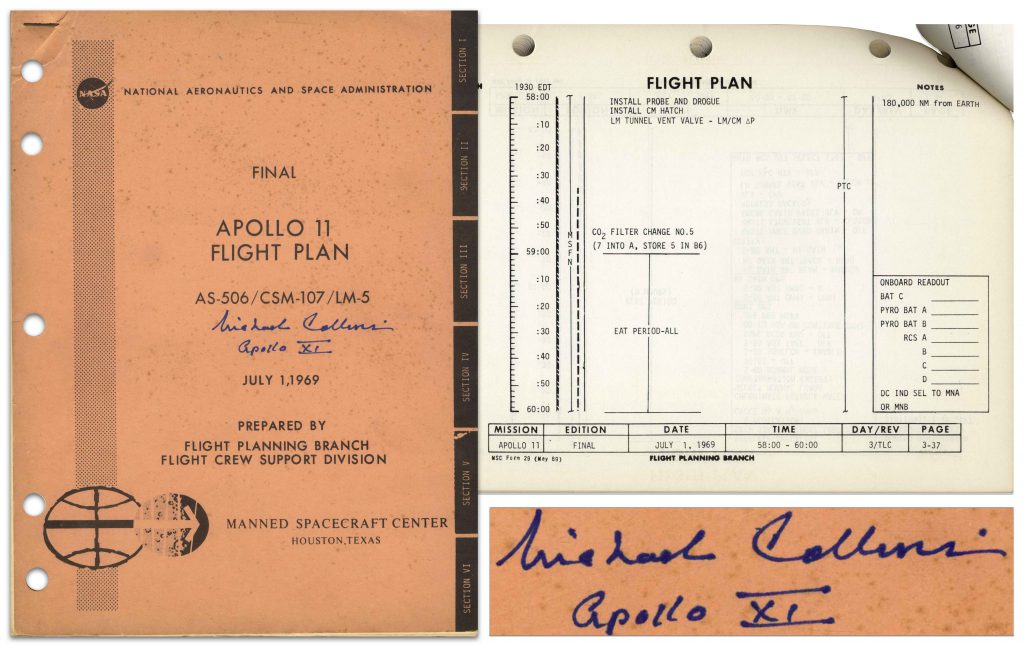 NASA
NATIONAL AERONAUTICS AND SPACE ADMINISTRATION
FINAL
APOLLO 11
FLIGHT PLAN
AS-506/CSM-107/LM-5
Michael Collins
Apollo XI
JULY 1,1969
PREPARED BY
FLIGHT PLANNING BRANCH
FLIGHT CREW SUPPORT DIVISION
MANNED SPACECRAFT CENTER
HOUSTON,TEXAS
SECTION I
SECTION II
SECTION III
SECTION IV
SECTION V
SECTION VI
FLIGHT PLAN
NOTES
1930 EDT
58:00
:10
:20
:30
:40
:50
59:00
:10
:20
:30
:40
:50
60:00
MSFN
INSTALL PROBE AND DROGUE
INSTALL CM HATCH
LM TUNNEL VENT VALVE - LM/CM ΔP
CO2 FILTER CHANGE NO.5
(7 INTO A, STORE 5 IN B6)
EAT PERIOD-ALL
PTC
180,000 NM from EARTH
ONBOARD READOUT
BAT C
PYRO BAT A
PYRO BAT B
RCS A
B
C
D
DC IND SEL TO MNA
OR MNB
MISSION EDITION DATE TIME DAY/REV PAGE
APOLLO 11 FINAL JULY 1, 1969 58:00 - 60:00 3/TLC 3-37
MSC Form 29 (May 69) FLIGHT PLANNING BRANCH
Michael Collins
Apollo XI